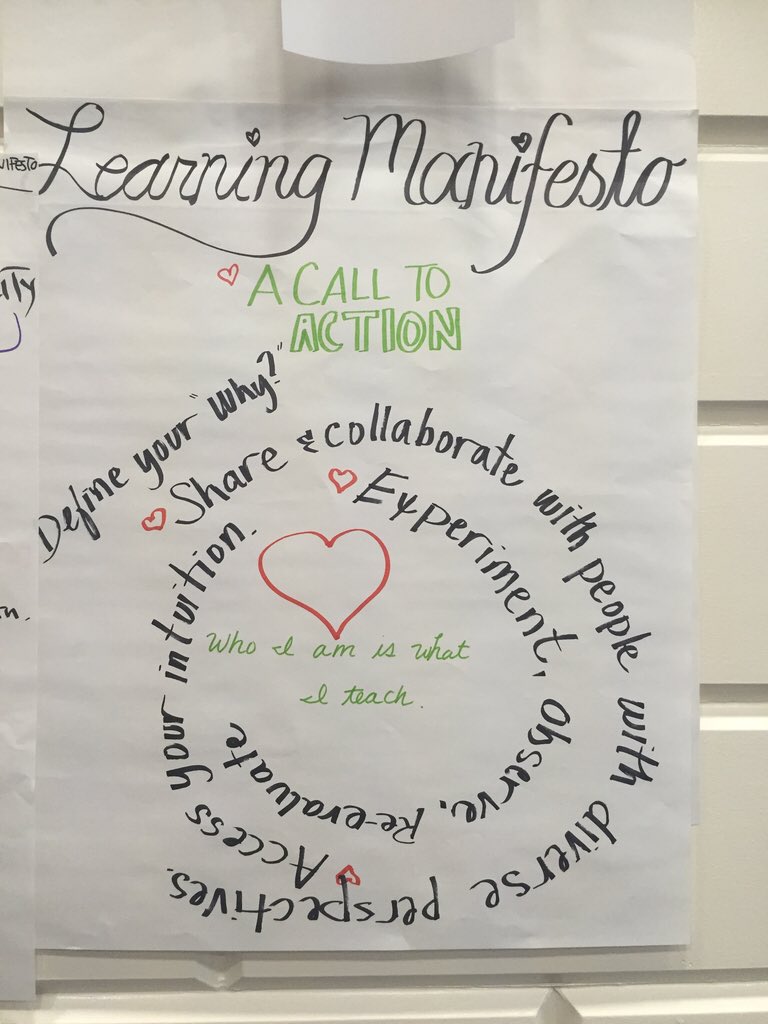 Learning Manifesto
A CALL TO
ACTION
Define your "Why?"
Share & collaborate with people with diverse perspectives.
Access your intuition.
Experiment, Observe, Re-evaluate
Who I am is what
I teach.